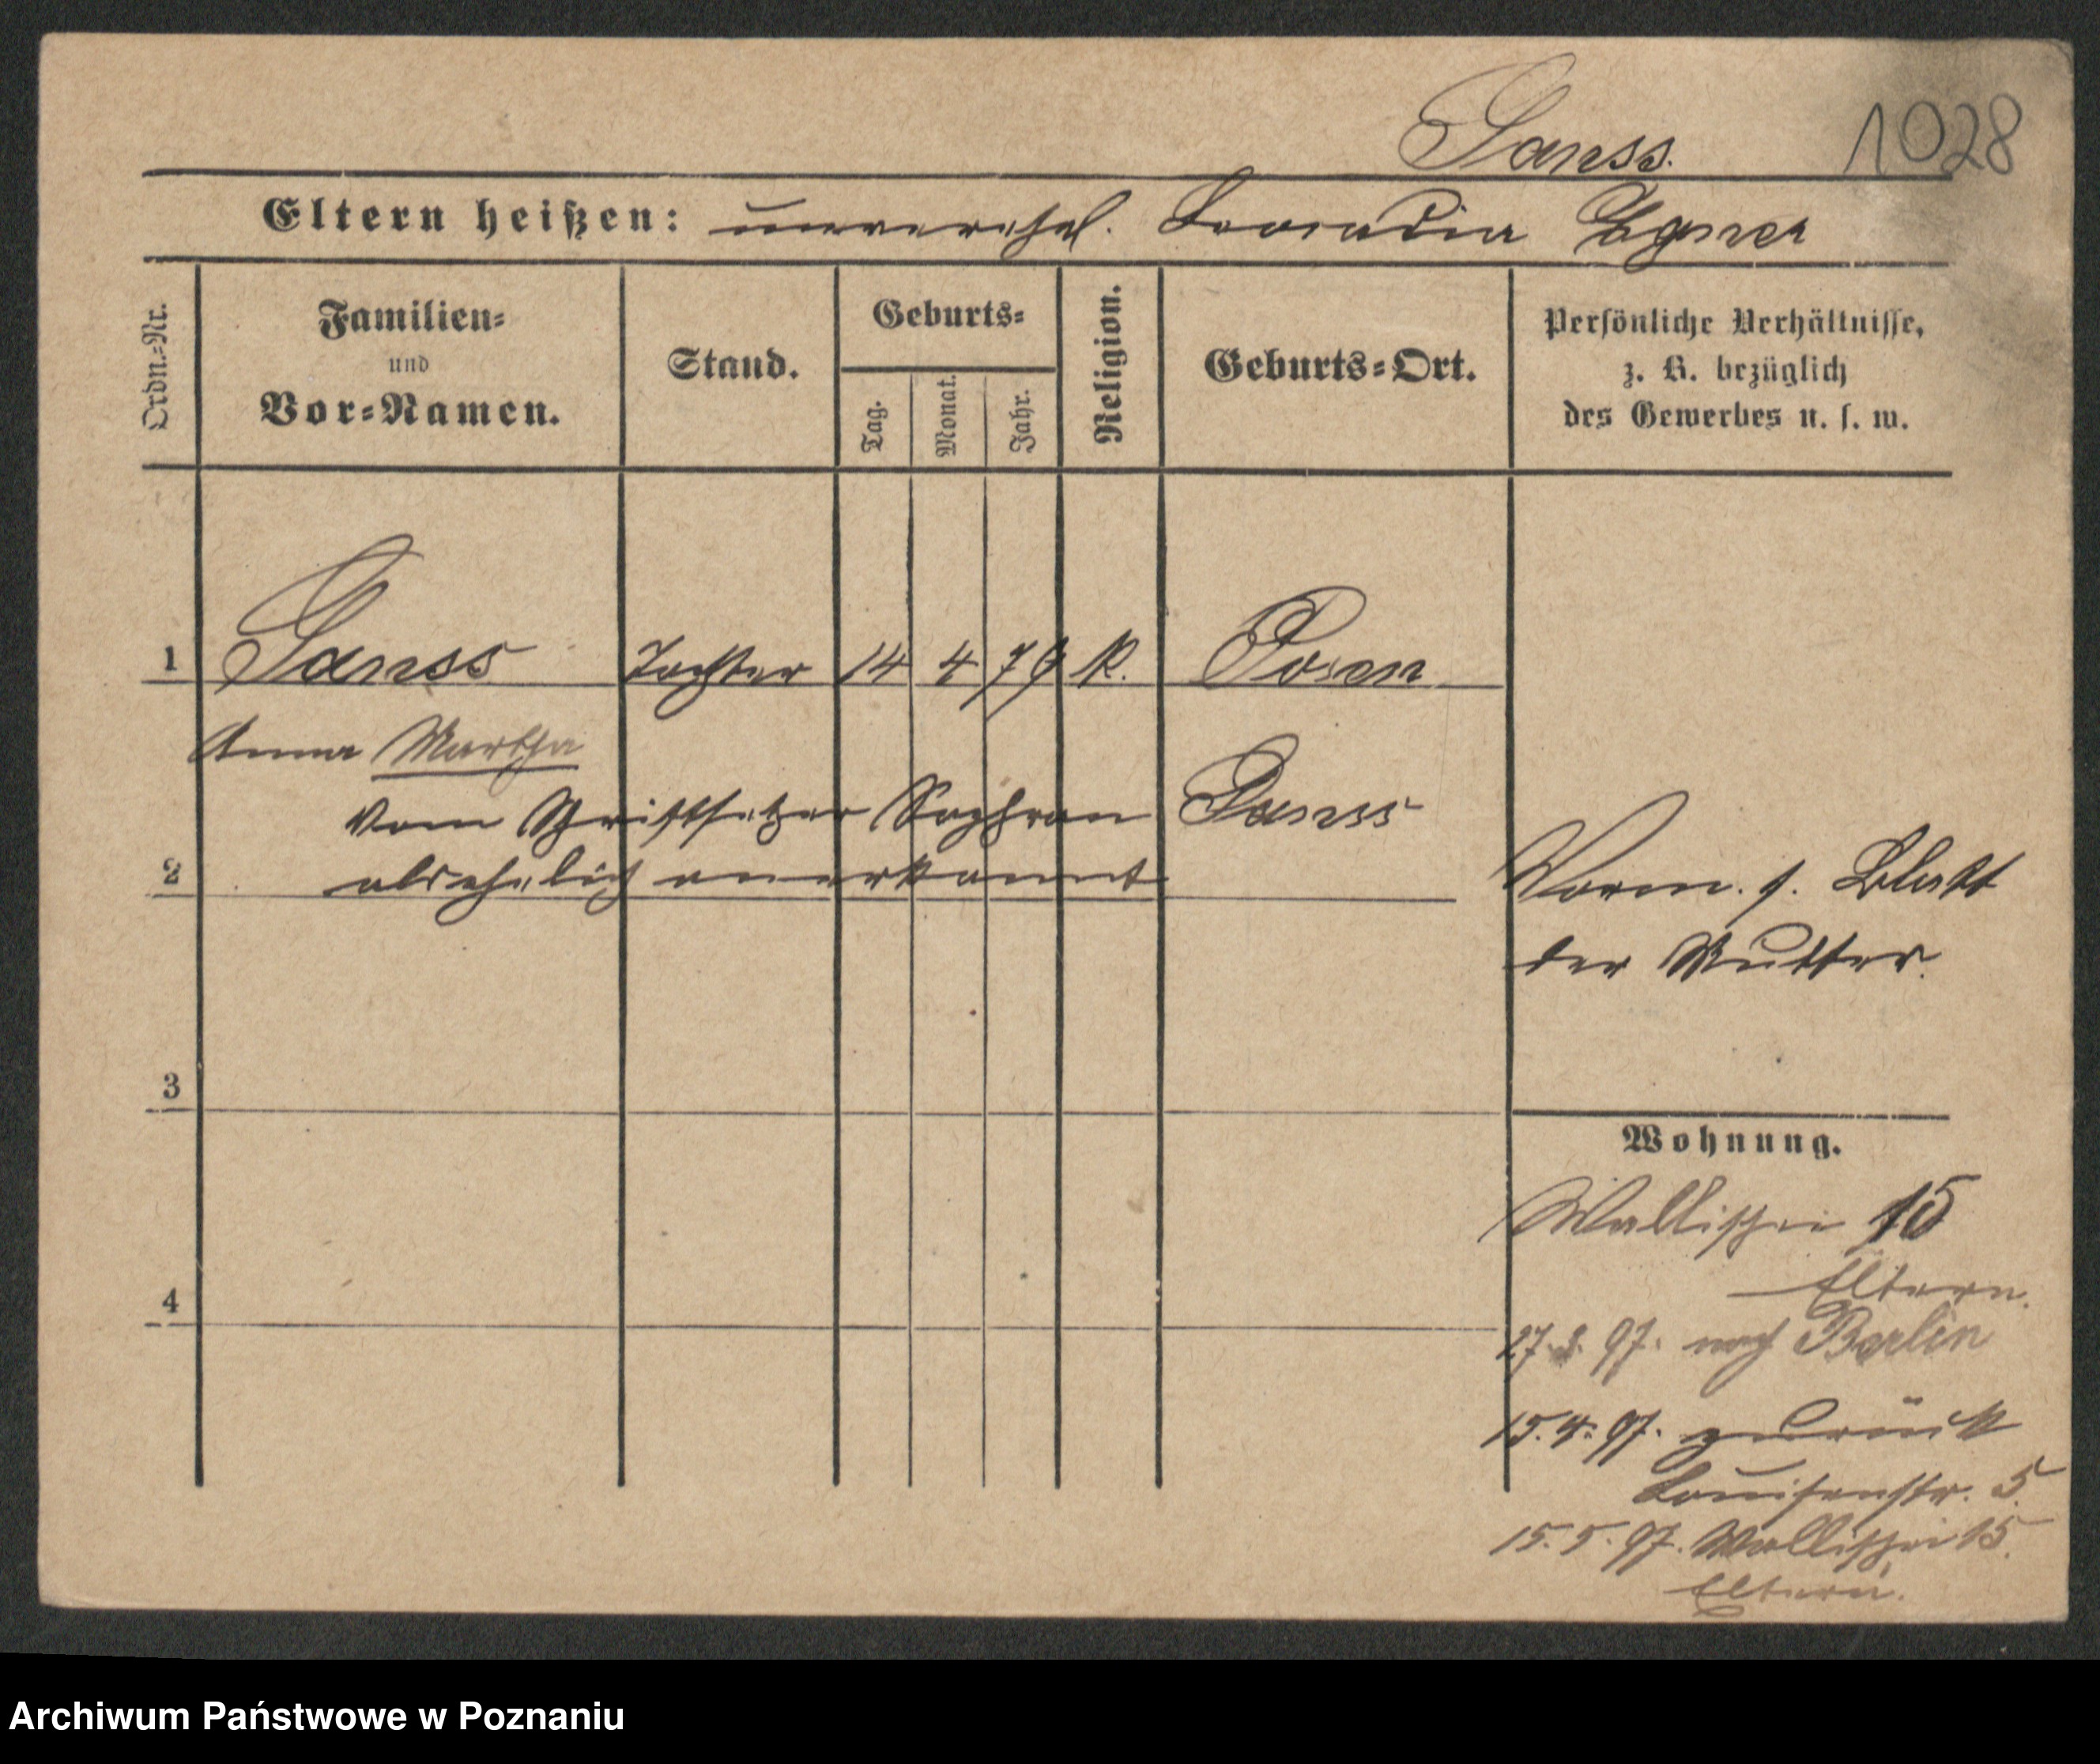 Ganss.
1028
Eltern heißen: unverehel. Leocadia Egner
Ordn.=Nr.
Familien=
und
Vor=Namen.
Stand.
Geburts=
Tag.
Monat.
Jahr.
Religion.
Geburts=Ort.
Persönliche Verhältnisse,
z. B. bezüglich
des Gewerbes u. s. w.
1 Ganss Tochter 14 4 79 K. Posen
Anna Martha
vom Schriftsetzer Ganss
2 als ehelich anerkannt
Vorm. s. Blatt
der Mutter.
3
Wohnung.
Wallischei 15
Eltern.
4
27. 97. nach Berlin
15.4.97. zurück
Louisenstr. 5.
15.5.97. Wallischei 15.
Eltern.
Archiwum Państwowe w Poznaniu